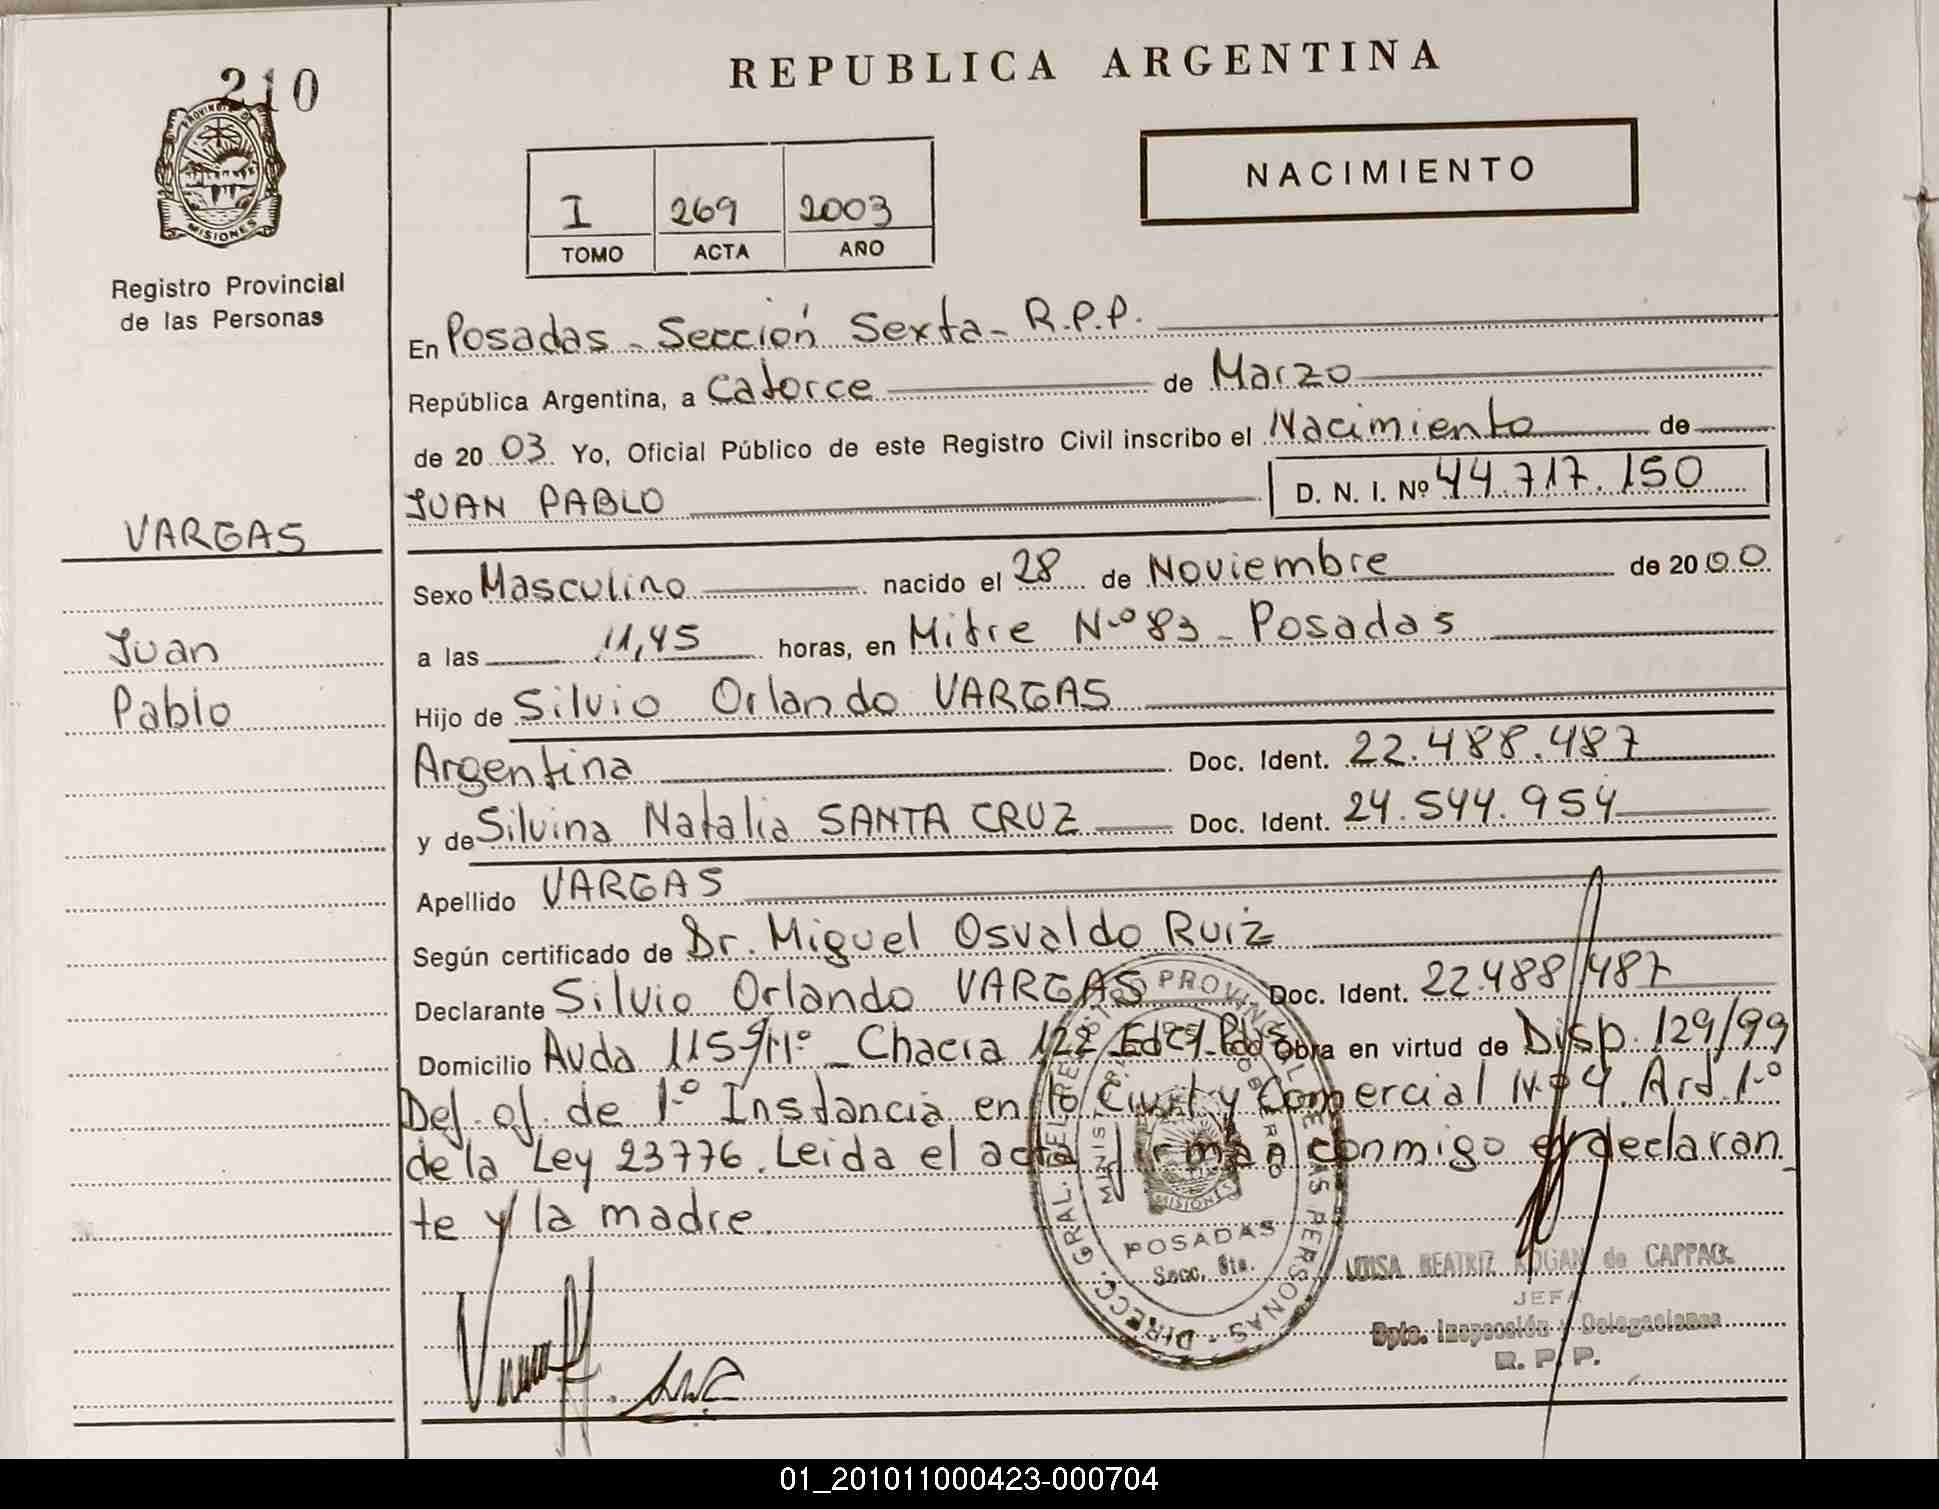 210
PROVINCIA DE
MISIONES
Registro Provincial
de las Personas
VARGAS
Juan
Pablo
REPUBLICA ARGENTINA
NACIMIENTO
I 269 2003
TOMO ACTA AÑO
En Posadas - Sección Sexta - R.P.P.
República Argentina, a Catorce de Marzo
de 20 03 Yo, Oficial Público de este Registro Civil inscribo el Nacimiento de
JUAN PABLO D. N. I. Nº 44.717.150
Sexo Masculino nacido el 28 de Noviembre de 20 00
a las 11,45 horas, en Mitre N.º 83 - Posadas
Hijo de Silvio Orlando VARGAS
Argentina Doc. Ident. 22.488.487
y de Silvina Natalia SANTA CRUZ Doc. Ident. 24.544.954
Apellido VARGAS
Según certificado de Dr. Miguel Osvaldo Ruiz
Declarante Silvio Orlando VARGAS Doc. Ident. 22.488.487
Domicilio Avda 115 Chacra 122 Obra en virtud de Disp. 129/99
Def. of. de 1.º Instancia en lo Civil y Comercial N.º 4. Art. 1.º
de la Ley 23776. Leida el acta firman conmigo el declaran
te y la madre.
DIRECC. GRAL. DEL REGISTRO PROVINCIAL DE LAS PERSONAS
POSADAS
Secc. 6ta.
MISIONES
LUISA BEATRIZ KOGAN de CAPPAC
JEFA
Dpto. Inspección y Delegaciones
R. P. P.
01_201011000423-000704